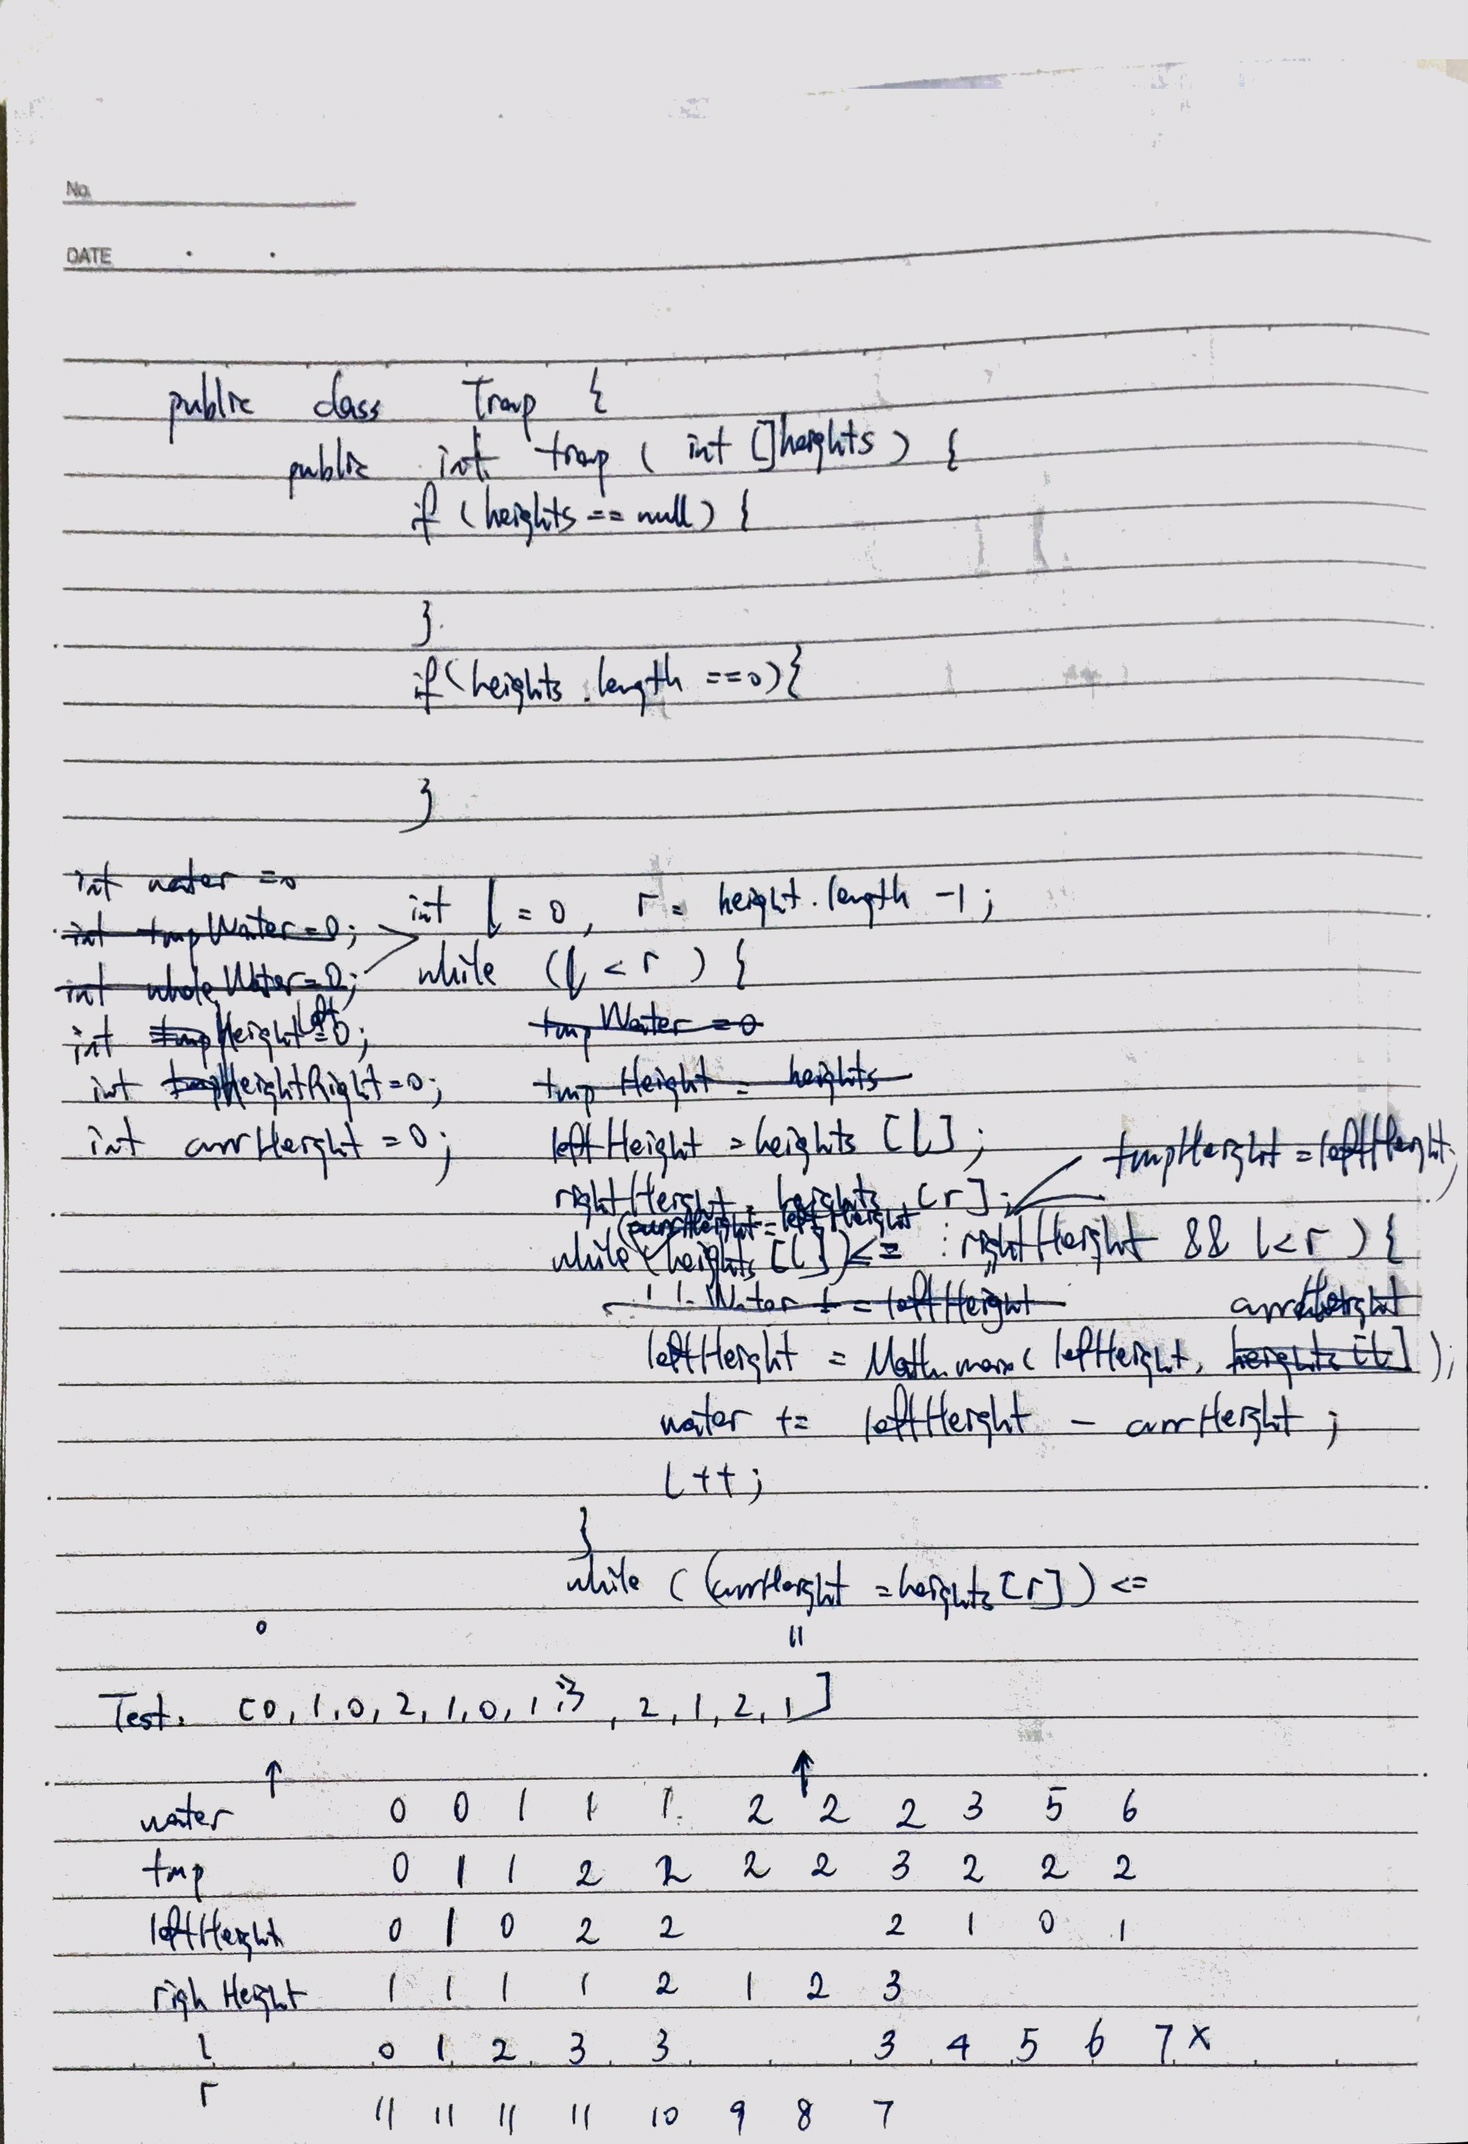 No.
DATE
public class Trap {
public int trap ( int []heights ) {
if (heights == null) {
}
if (heights.length ==0){
}
int water =0
int tmpWater=0;
int wholeWater=0;
int tmpHeightLeft=0;
int tmpHeightRight=0;
int currHeight =0;
int l = 0, r = height.length -1;
while (l < r ) {
tmpWater =0
tmp Height = heights
leftHeight = heights [l];
tmpHeight = leftHeight;
rightHeight = heights [r];
(currHeight = leftHeight
while (heights [l]) <= rightHeight && l<r ) {
Water + = leftHeight
currHeight
leftHeight = Math.max( leftHeight, heights [l] );
water += leftHeight - currHeight ;
l ++ ;
}
while ( (currHeight = heights [r] ) <=
0 11
Test: [0, 1, 0, 2, 1, 0, 1, 3, 2, 1, 2, 1]
↑ ↑
water 0 0 1 1 1 2 2 2 3 5 6
tmp 0 1 1 2 2 2 2 3 2 2 2
leftHeight 0 1 0 2 2 2 1 0 1
righ Height 1 1 1 1 2 1 2 3
l 0 1 2 3 3 3 4 5 6 7 x
r 11 11 11 11 10 9 8 7